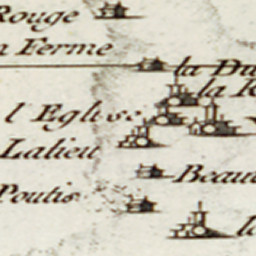 Rouge
Ferme
la Du
la R
l'Eglise
Lalieu
Beau
Poutis
la